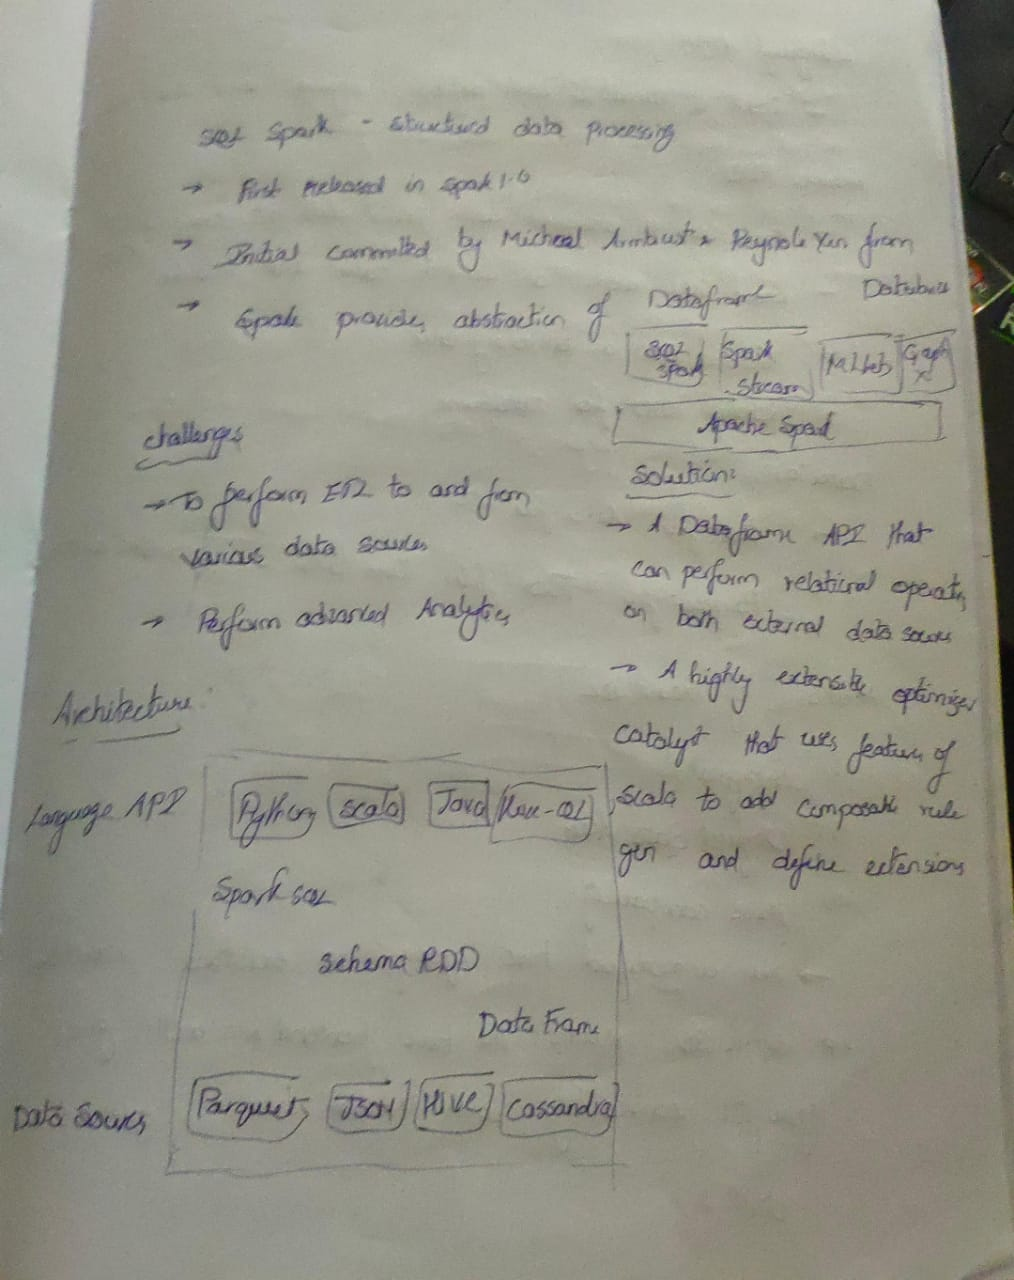 SQL Spark - Structured data Processing
→ First released in Spark 1.0
→ Initial committed by Micheal Armbust & Reynole Xin from
Databux
→ Spark provides abstraction of Dataframe
SQL Spark
Spark Stream
MLlib
Graph X
Apache Spark
challenges
→ To perform ETL to and from
various data sources
→ Perform advanced Analytics
Solution:
→ A Dataframe API that
can perform relational operatn
on both external data sources
→ A highly extensible optimizer
catalyst that uses feature of
scala to add composable rule
gen and define extensions
Architecture:
Language API
Python
Scala
Java
Hive-QL
Spark SQL
Schema RDD
Data Frame
Data Sources
Parquet
JSON
HIVE
Cassandra